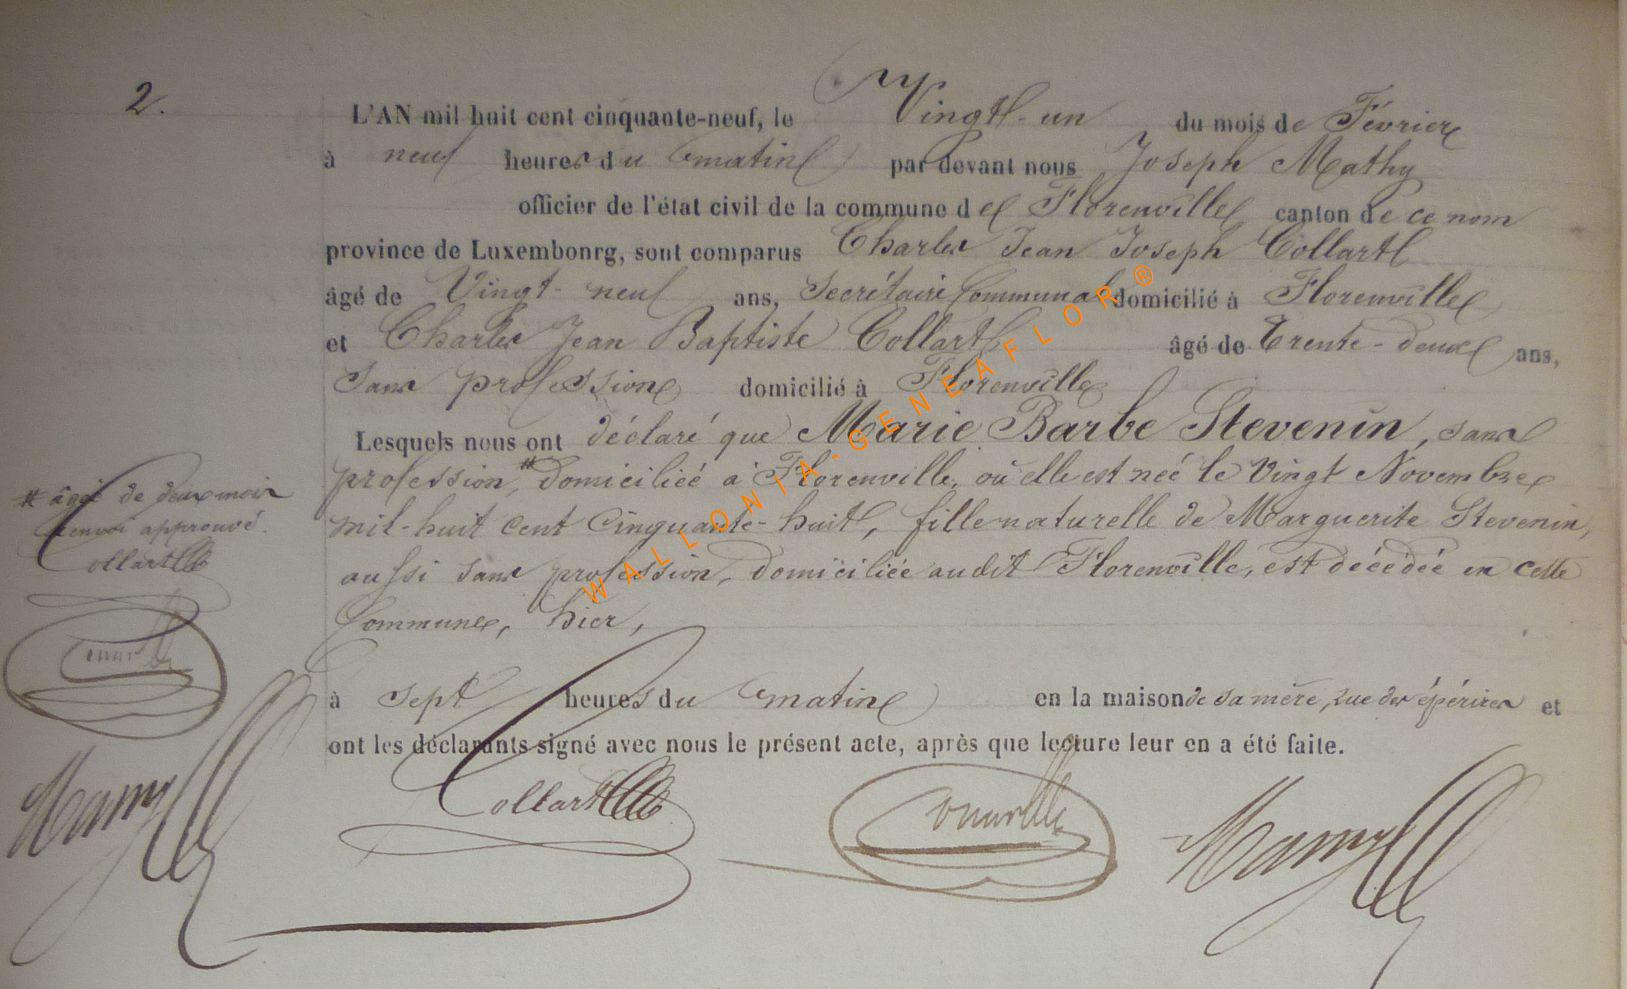 2.
L'AN mil huit cent cinquante-neuf, le Vingt-un du mois de Février
à neuf heures du matin par devant nous Joseph Mathy
officier de l'état civil de la commune de Florenville canton de ce nom
province de Luxembonrg, sont comparus Charles Jean Joseph Collart
âgé de Vingt-neuf ans, Secrétaire Communal domicilié à Florenville
et Charles Jean Baptiste Collart âgé de Trente-deux ans,
Sans profession domicilié à Florenville
Lesquels nous ont déclaré que Marie Barbe Stevenin, sans
profession, # domiciliée à Florenville, où elle est née le Vingt Novembre
mil-huit cent Cinquante-huit, fille naturelle de Marguerite Stevenin,
aussi sans profession, domiciliée audit Florenville, est décédée en cette
Commune, hier,
à sept heures du matin en la maison de sa mère, rue des épérires et
ont les déclarants signé avec nous le présent acte, après que lecture leur en a été faite.
# âgée de deux mois
renvoi approuvé.
Collart
Collart
WALLONIA-GENEAFLOR®